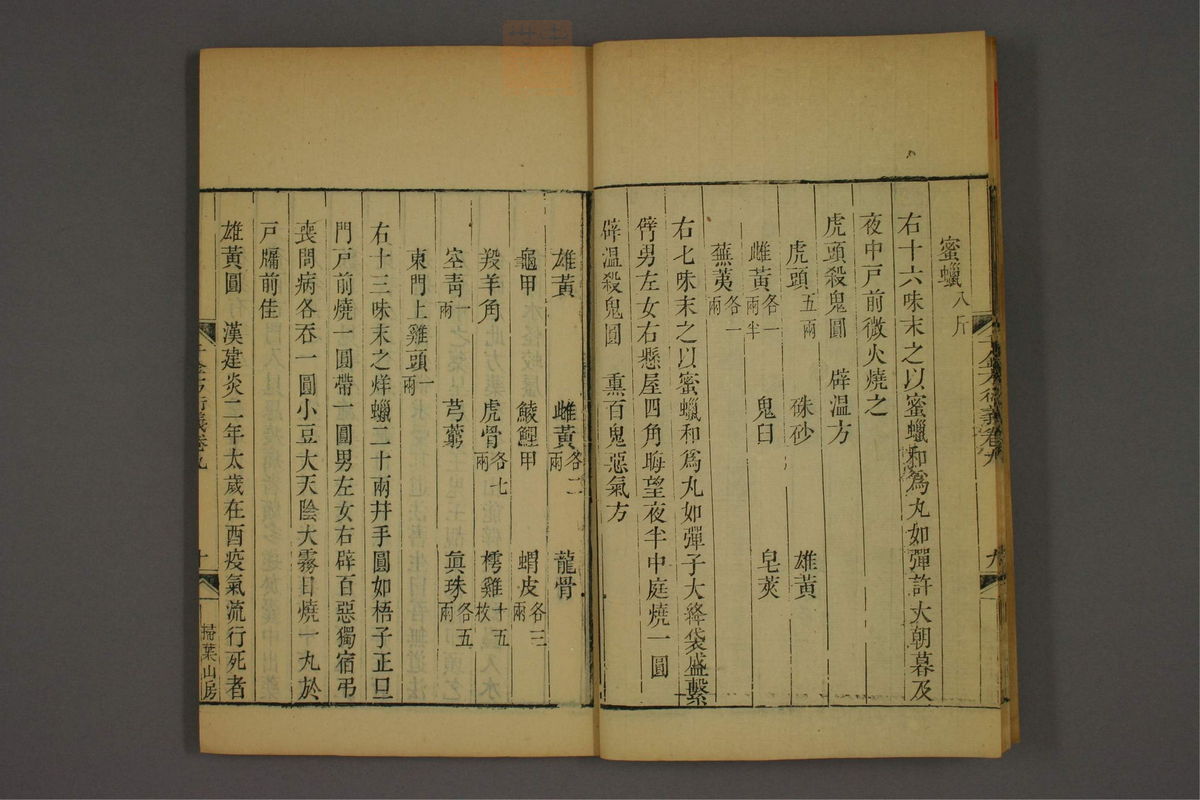 蜜蠟八斤
右十六味末之以蜜蠟和為丸如彈許大朝暮及
夜中戸前微火燒之
虎頭殺鬼圓 辟溫方
虎頭五兩 硃砂 雄黃
雌黃各一兩半 鬼臼 皂莢
蕪荑各一兩
右七味末之以蜜蠟和為丸如彈子大絳袋盛繫
臂男左女右懸屋四角晦望夜半中庭燒一圓
辟溫殺鬼圓 熏百鬼惡氣方
千金方衍義卷九
九
雄黃 雌黃各二兩 龍骨
龜甲 鯪鯉甲 蝟皮各三兩
羖羊角 虎骨各七兩 樗雞十五枚
空青一兩 芎藭 眞珠各五兩
東門上雞頭一兩
右十三味末之烊蠟二十兩并手圓如梧子正旦
門戸前燒一圓帶一圓男左女右辟百惡獨宿弔
喪問病各吞一圓小豆大天陰大霧日燒一丸於
戸牖前佳
雄黃圓 漢建炎二年太歲在酉疫氣流行死者
千金方衍義卷九
十
掃葉山房